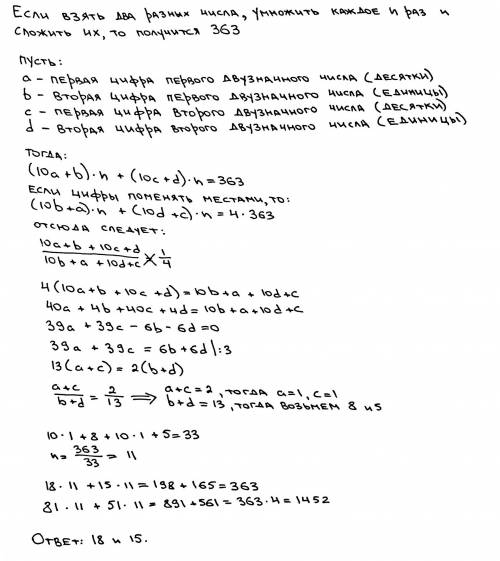 Если взять два разных числа, умножить каждое n раз и
сложить их, то получится 363
Пусть:
a – первая цифра первого двузначного числа (десятки)
b – вторая цифра первого двузначного числа (единицы)
c – первая цифра второго двузначного числа (десятки)
d – вторая цифра второго двузначного числа (единицы)
Тогда:
(10a+b)·n + (10c+d)·n=363
Если цифры поменять местами, то:
(10b+a)·n + (10d+c)·n=4·363
Отсюда следует:
10a+b + 10c+d / 10b+a + 10d+c ⤫ 1/4
4(10a+b + 10c+d)=10b+a + 10d+c
40a + 4b +40c +4d= 10b+a+10d+c
39a + 39c – 6b – 6d=0
39a + 39c = 6b+6d |:3
13(a+c)=2(b+d)
a+c / b+d = 2/13 ⟹ a+c=2, тогда a=1, c=1
b+d=13, тогда возьмем 8 и 5
10·1+8 + 10·1+5=33
n= 363/33 = 11
18·11 +15·11=198+165=363
81·11 + 51·11=891+561=363·4=1452
Ответ: 18 и 15.